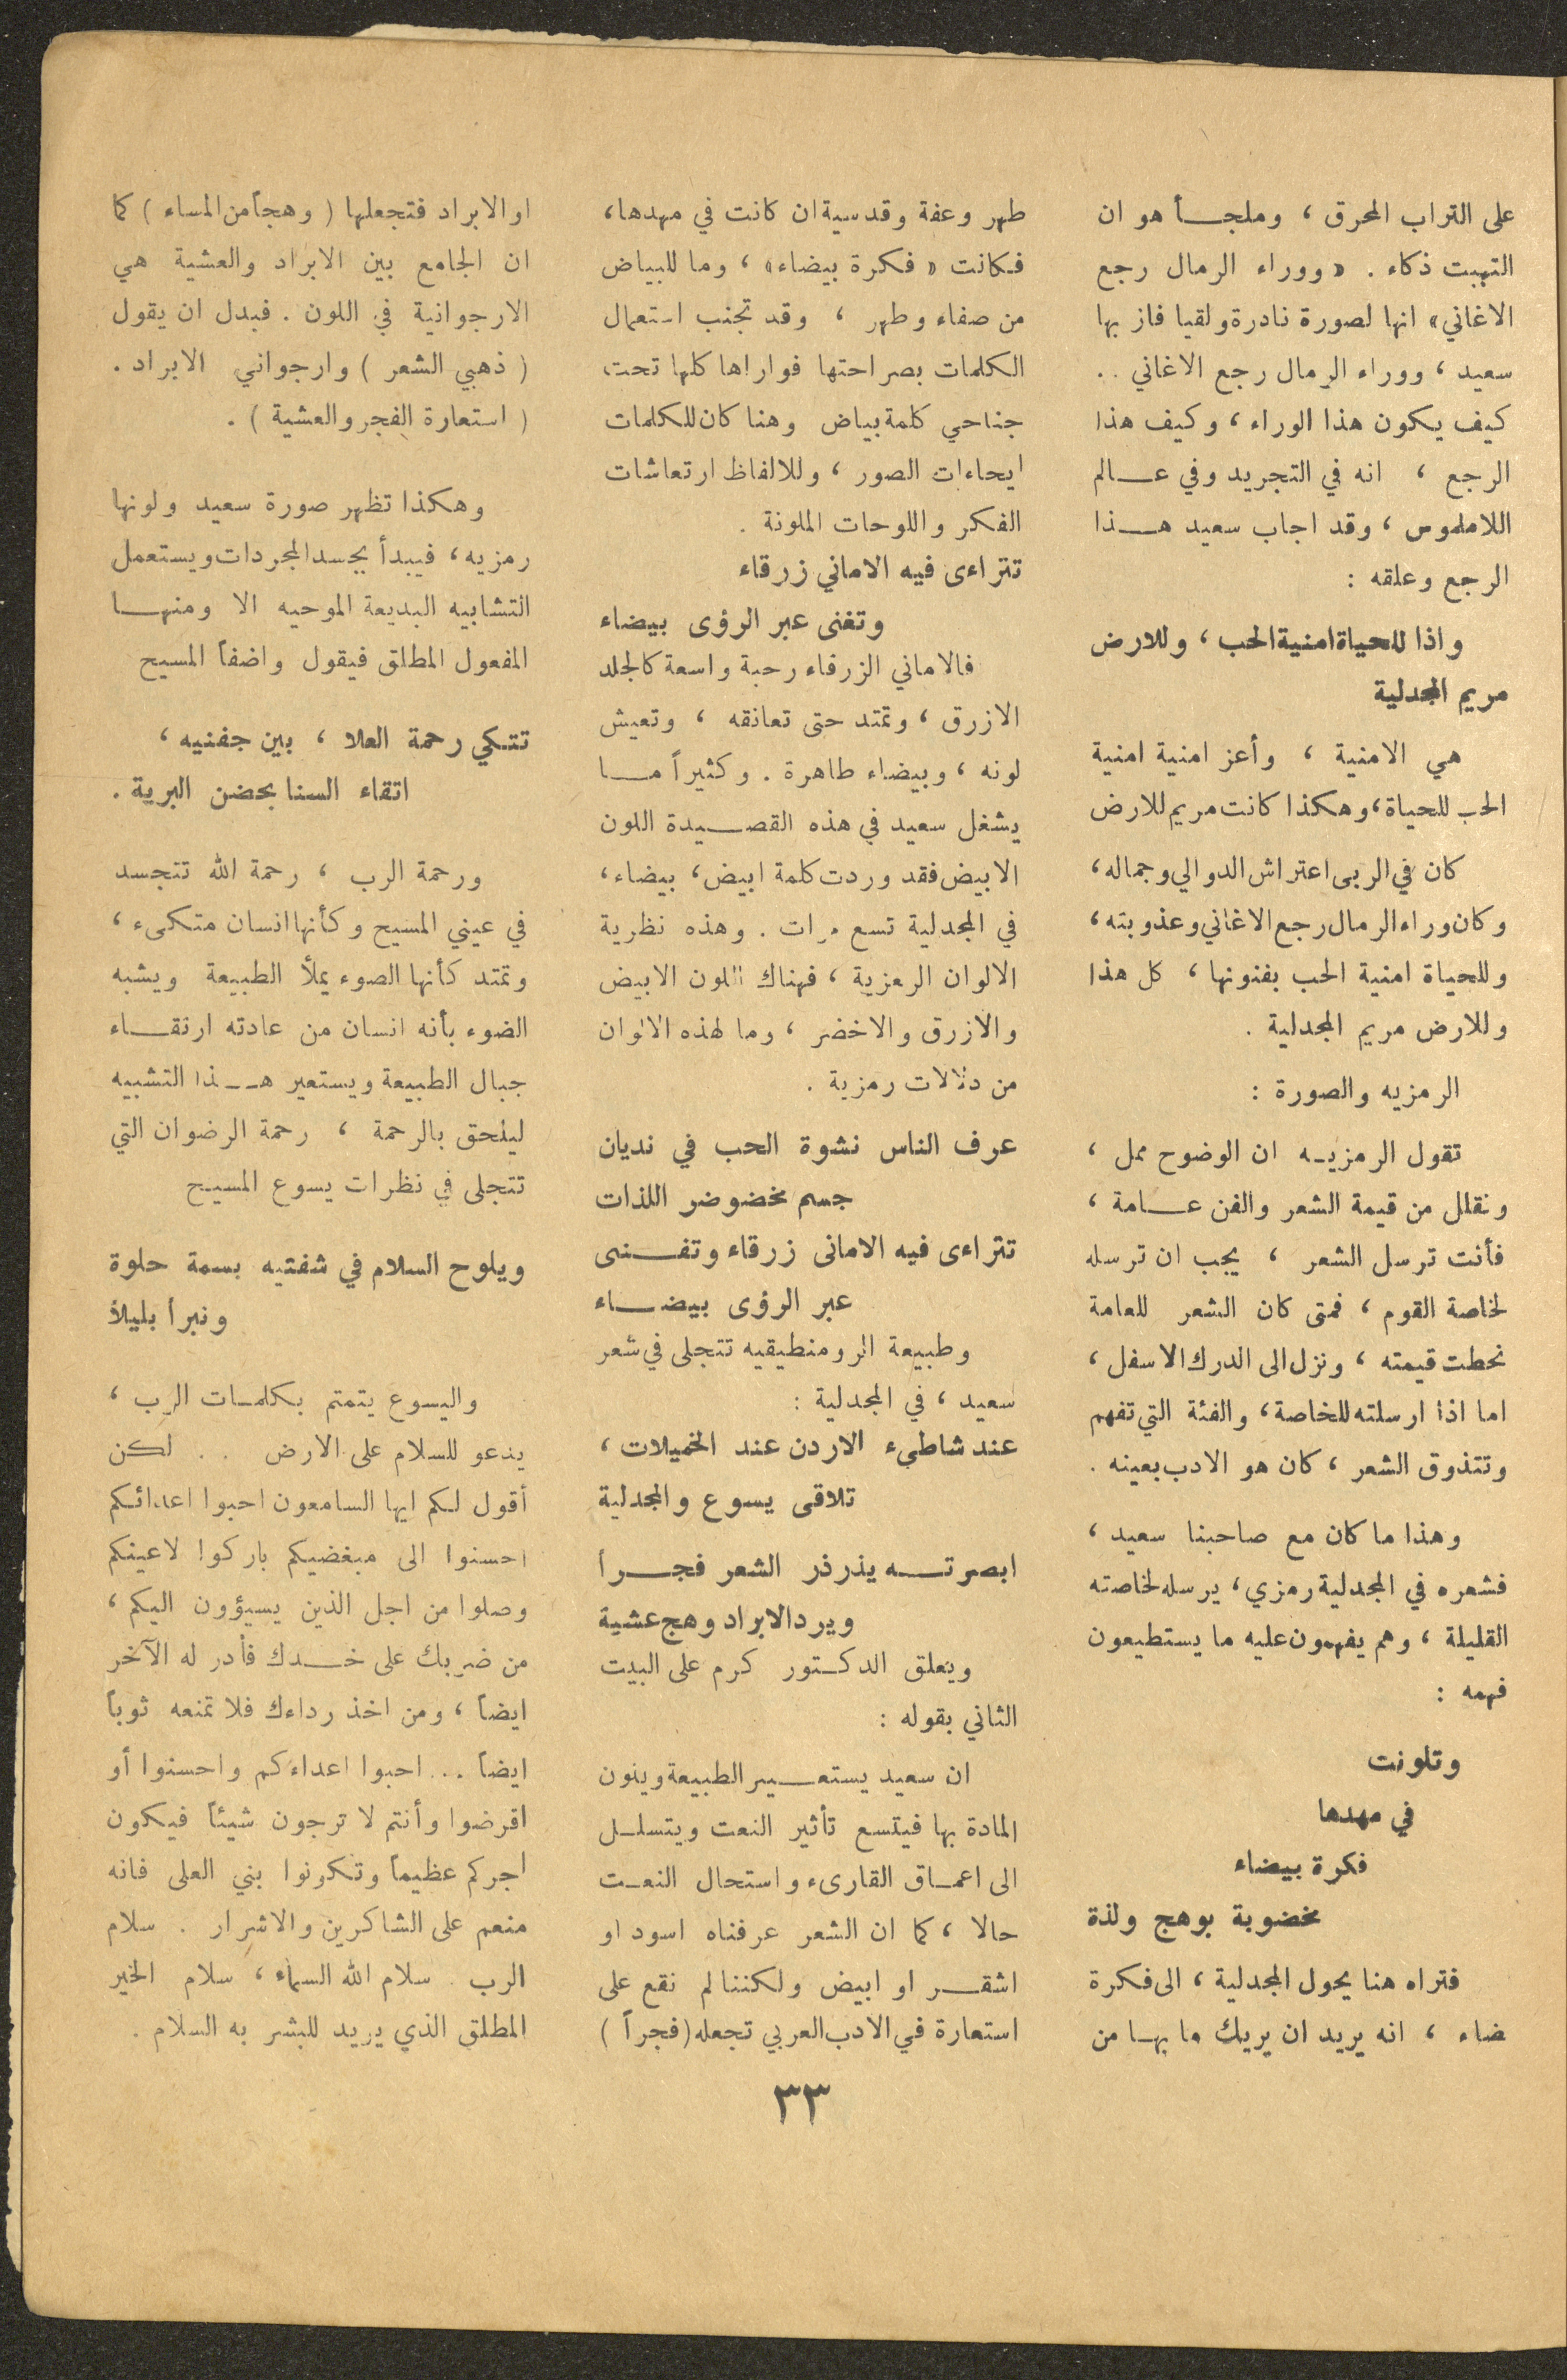 على التراب المحرق ، وملجـأ هو ان
التهبت ذكاء . « ووراء الرمال رجع
الاغاني » انها لصورة نادرة ولقيا فاز بها
سعيد ، ووراء الرمال رجع الاغاني ..
كيف يكون هذا الوراء ، وكيف هذا
الرجع ، انه في التجريد وفي عـالم
اللاملموس ، وقد اجاب سعيد هـذا
الرجع وعلقه :
واذا للحياة امنية الحب ، وللارض
مريم المجدلية
هي الامنية ، وأعز امنية امنية
الحب للحياة ، وهكذا كانت مريم للارض
كان في الربى اعتراش الدوالي وجماله ،
وكان وراء الرمال رجع الاغاني وعذوبته ،
وللحياة امنية الحب بفنونها ، كل هذا
وللارض مريم المجدلية .
الرمزيه والصورة :
تقول الرمزيـه ان الوضوح ممل ،
ونقلل من قيمة الشعر والفن عـامة ،
فأنت ترسل الشعر ، يجب ان ترسله
لخاصة القوم ، فمتى كان الشعر للعامة
نحطت قيمته ، ونزل الى الدرك الاسفل ،
اما اذا ارسلته للخاصة ، والفئة التي تفهم
وتتذوق الشعر ، كان هو الادب بعينه .
وهذا ما كان مع صاحبنا سعيد ،
فشعره في المجدلية رمزي ، يرسله لخاصته
القليلة ، وهم يفهمون عليه ما يستطيعون
فهمه :
وتلونت
في مهدها
فكرة بيضاء
مخضوبة بوهج ولذة
فتراه هنا يحول المجدلية ، الى فكرة
ضاء ، انه يريد ان يريك ما بهـا من
طهر وعفة وقدسية ان كانت في مهدها ،
فكانت « فكرة بيضاء » ، وما للبياض
من صفاء وطهر ، وقد تجنب استعمال
الكلمات بصراحتها فواراها كلها تحت
جناحي كلمة بياض وهنا كان للكلمات
ايحاءات الصور ، وللالفاظ ارتعاشات
الفكر واللوحات الملونة .
تتراءى فيه الاماني زرقاء
وتغنى عبر الرؤى بيضاء
فالاماني الزرقاء رحبة واسعة كالجلد
الازرق ، وتمتد حتى تعانقه ، وتعيش
لونه ، وبيضاء طاهرة . وكثيراً مـا
يشغل سعيد في هذه القصـيدة اللون
الابيض فقد وردت كلمة ابيض ، بيضاء ،
في المجدلية تسع مرات . وهذه نظرية
الالوان الرمزية ، فهناك اللون الابيض
والازرق والاخضر ، وما لهذه الالوان
من دلالات رمزية .
عرف الناس نشوة الحب في نديان
جسم مخضوضر اللذات
تتراءى فيه الامانى زرقاء وتفـنى
عبر الرؤى بيضـاء
وطبيعة الرومنطيقيه تتجلى في شعر
سعيد ، في المجدلية :
عند شاطىء الاردن عند الخميلات ،
تلاقى يسوع والمجدلية
ابصرتـه يذرذر الشعر فجـراً
ويرد الابراد وهج عشية
ويعلق الدكـتور كرم على البيت
الثاني بقوله :
ان سعيد يستعـير الطبيعة ويلون
المادة بها فيتسع تأثير النعت ويتسلـل
الى اعمـاق القارىء واستحال النعـت
حالا ، كما ان الشعر عرفناه اسود او
اشقـر او ابيض ولكننا لم نقع على
استعارة في الادب العربي تجعله ( فجراً )
او الابراد فتجعلها ( وهجاً من المساء ) كما
ان الجامع بين الابراد والعشية هي
الارجوانية في اللون . فبدل ان يقول
( ذهبي الشعر ) وارجواني الابراد .
( استعارة الفجر والعشية ) .
وهكذا تظهر صورة سعيد ولونها
رمزيه ، فيبدأ يجسد المجردات ويستعمل
التشابيه البديعة الموحيه الا ومنهـا
المفعول المطلق فيقول واضفاً المسيح
تتكي رحمة العلا ، بين جفنيه ،
اتقاء السنا بحضن البرية .
ورحمة الرب ، رحمة الله تتجسد
في عيني المسيح وكأنها انسان متكىء ،
وتمتد كأنها الضوء يملأ الطبيعة ويشبه
الضوء بأنه انسان من عادته ارتقـاء
جبال الطبيعة ويستعير هـذا التشبيه
ليلحق بالرحمة ، رحمة الرضوان التي
تتجلى في نظرات يسوع المسيح
ويلوح السلام في شفتيه بسمة حلوة
ونبرأ بليلاً
واليسوع يتمتم بكلمـات الرب ،
يدعو للسلام على الارض . . لكن
أقول لكم ايها السامعون احبوا اعدائكم
احسنوا الى مبغضيكم باركوا لاعينكم
وصلوا من اجل الذين يسيؤون اليكم ،
من ضربك على خـدك فأدر له الآخر
ايضاً ، ومن اخذ رداءك فلا تمنعه ثوباً
ايضاً ... احبوا اعداءكم واحسنوا أو
اقرضوا وأنتم لا ترجون شيئاً فيكون
اجركم عظيماً وتكونوا بني العلى فانه
منعم على الشاكرين والاشرار . سلام
الرب . سلام الله السماء ، سلام الخير
المطلق الذي يريد للبشر به السلام .
٣٣